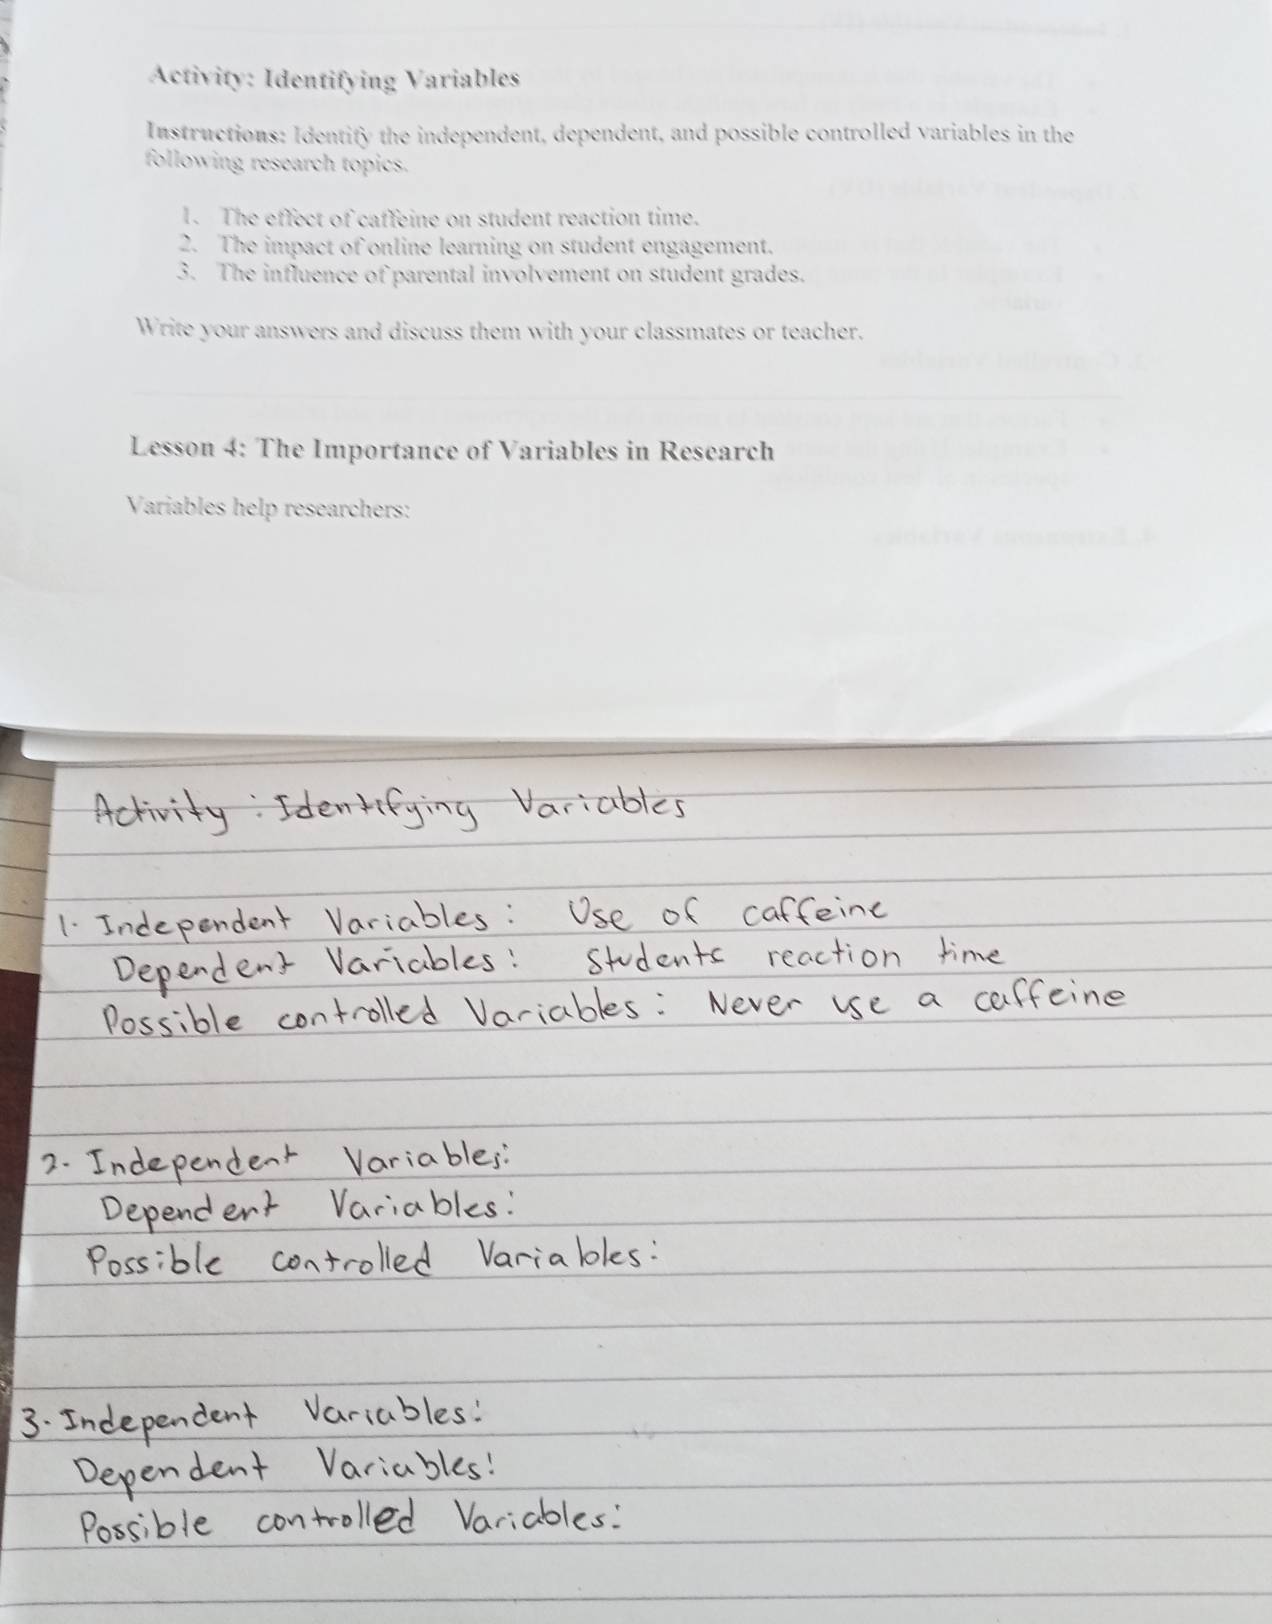 Activity: Identifying Variables
Instructions: Identify the independent, dependent, and possible controlled variables in the
following research topics.
1. The effect of caffeine on student reaction time.
2. The impact of online learning on student engagement.
3. The influence of parental involvement on student grades.
Write your answers and discuss them with your classmates or teacher.
Lesson 4: The Importance of Variables in Research
Variables help researchers:
Activity: Identifying Variables
1. Independent Variables: Use of caffeine
Dependent Variables: Students reaction time
Possible controlled Variables: Never use a caffeine
2. Independent Variables:
Dependent Variables:
Possible controlled Variables:
3. Independent Variables:
Dependent Variables:
Possible controlled Variables: